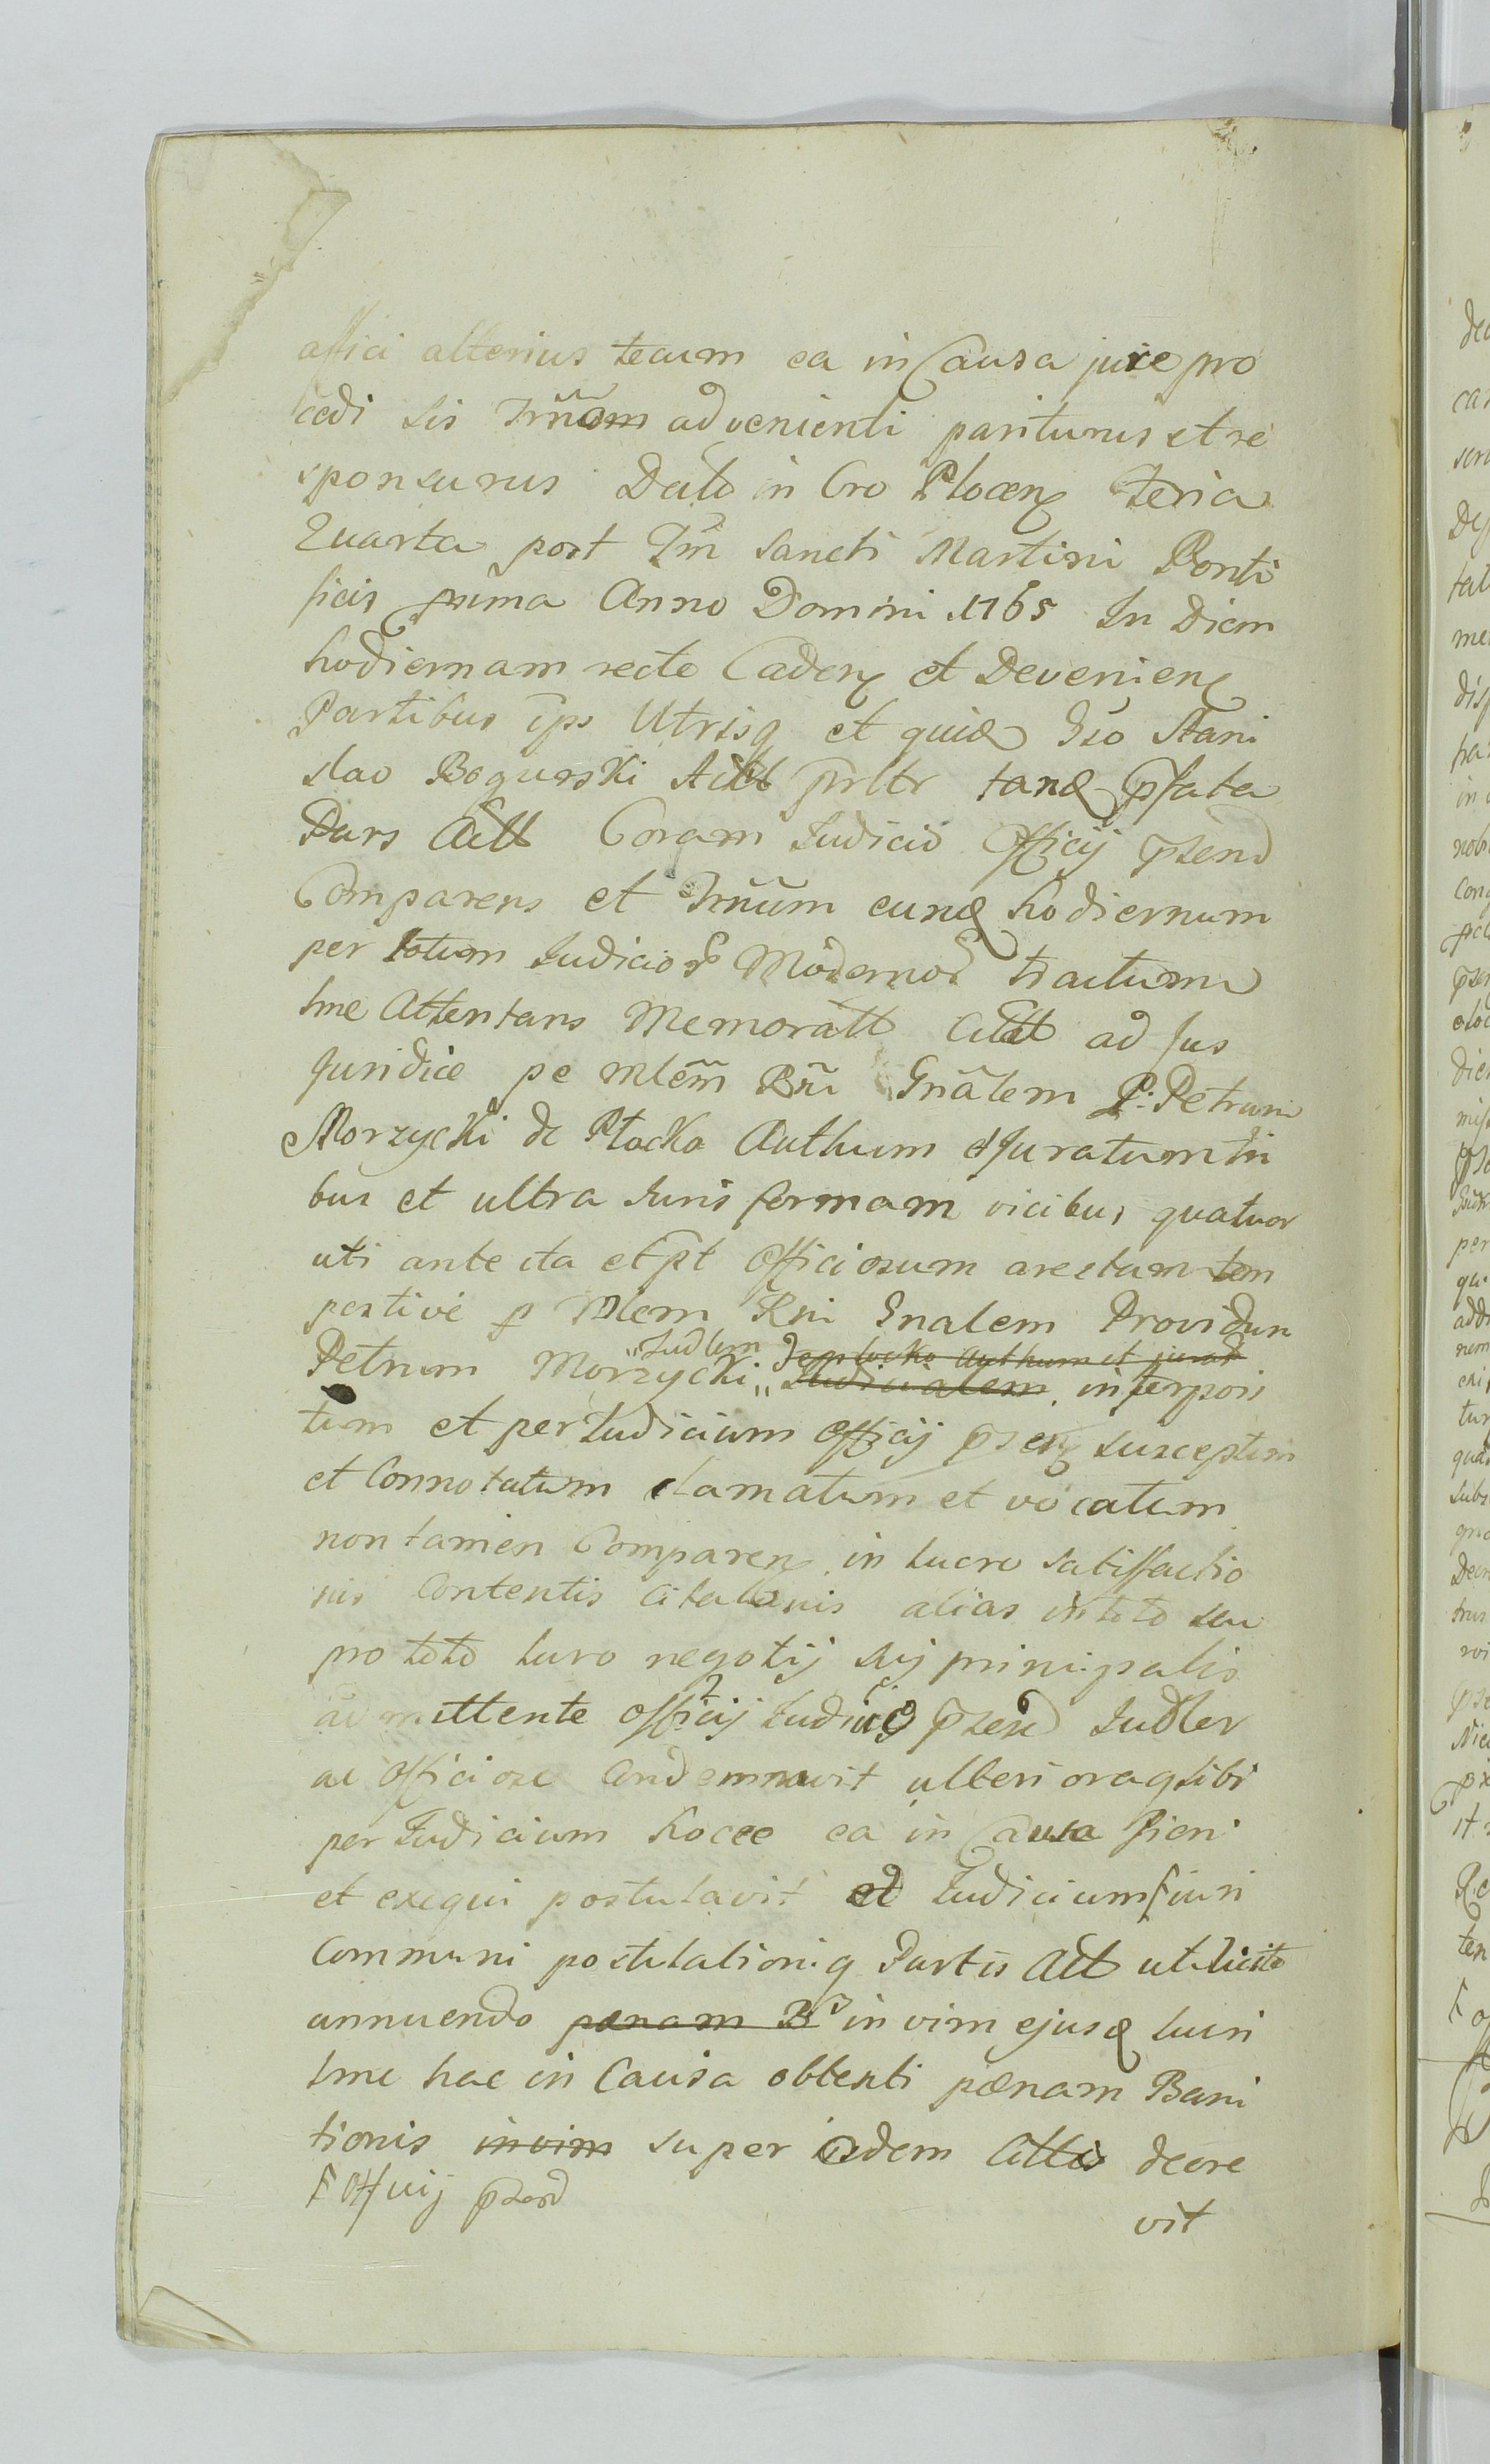 affici alterius tecum ea in Causa jure pro
cedi sis Trnũm advenienti pariturus et re
sponsurus Dato in Cro Plocen Feria
Quarta post Fm̃ Sancti Martini Ponti
ficis prima Anno Domini 1765 In Diem
hodiernam recte Caden et Devenien
Partibus ips Utrisq et quidē Gso Stani
slao Bogurski Actt prltr tanq pfata
Pars Actt Coram Judicio Officij psend
Comparens et Trnũm eunq hodiernum
per totum Judicior Modernor tractum
lme Attentans Memoratt Citatt ad Jus
Juridice pe Mlem̃ Rñi Gnãlem P: Petrum
Morzycki de Płocko Authum et Juratum Tri
bus et ultra Juris formam vicibus quatuor
uti ante ita et pt Officiosum arestum tem
pestive p Mlem Rni Gnalem Providum
Judlem De plocko Authum et jurat
Petrum Morzycki Judicialem interposi
tum et per Judicium Officij psen susceptum
et Connotatum clamatum et vocatum
non tamen Comparen in lucro satisfactio
nis Contentis Citationis alias in toto seu
pro toto lucro negotij sui principalis
admittente Officij Judicio psend Judler
ac Officiose Condemnavit ulterioraq sibi
per Judicium hocce ea in Causa fieri
et exequi postulavit et Judicium juri
Communi postulationiq Partis Actt uti licite
annuendo pænam B in vim ejusq lucri
lme hac in Causa obtenti pænam Bani
tionis in vim super eodem Citto decre
Officij psend
vit